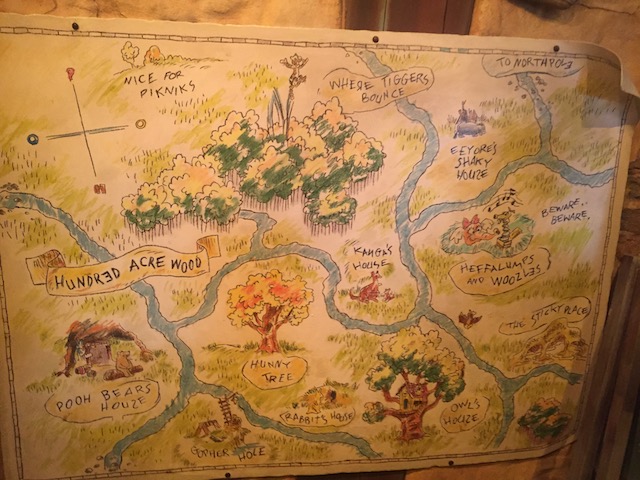 NICE FOR
PIKNIKS
WHERE TIGGERS
BOUNCE
TO NORTHPOLE
EEYORE'S
SHAKY
HOUZE
BEWARE,
BEWARE,
HEFFALUMPS
AND WOOZLES
KANGA'S
HOUSE
HUNDRED ACRE WOOD
THE STICKY PLACE
HUNNY
TREE
POOH BEARS
HOUZE
RABBIT'S HOUSE
OWL'S
HOUZE
GOPHER HOLE